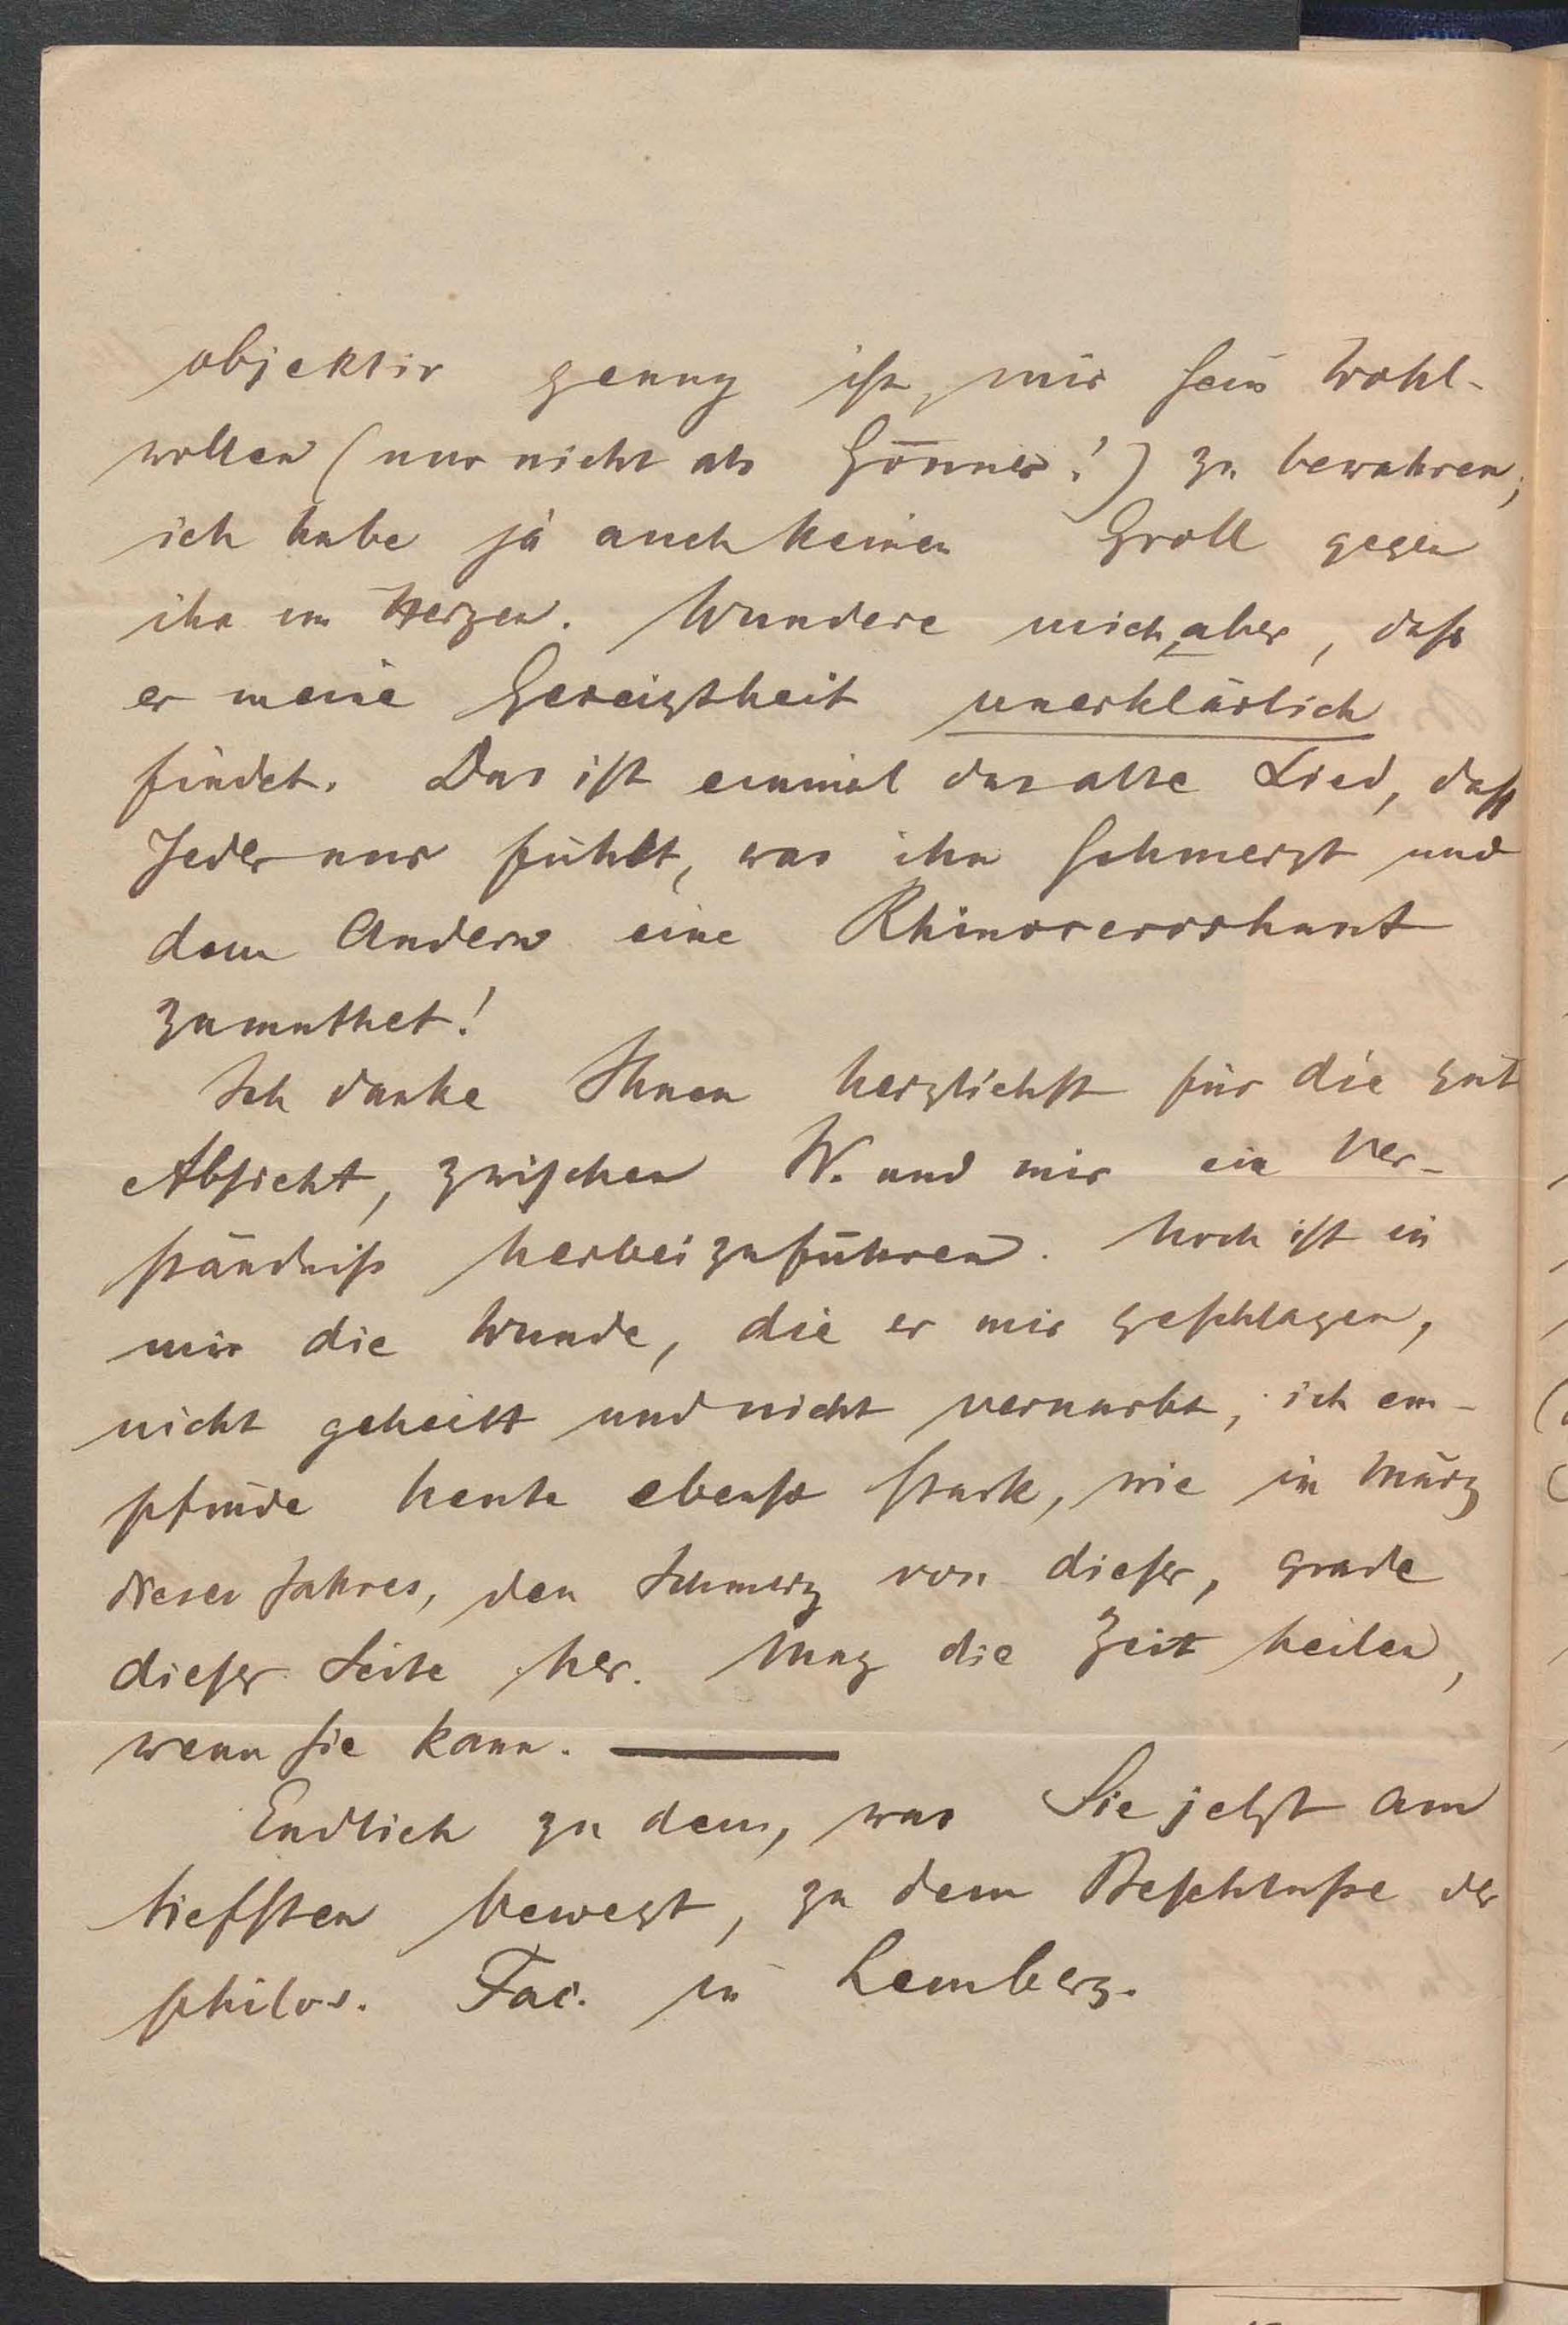 objektiv genug ist, mir sein Wohl-
wollen (nur nicht als Gönner!) zu bewahren;
ich habe ja auch keinen Groll gegen
ihn im Herzen. Wundere mich, aber, daß
er meine Gereiztheit unerklärlich
findet. Das ist einmal das alte Lied, daß
Jeder nur fühlt, was ihn schmerzt und
dem Andern eine Rhinoceroshaut
zumuthet!
Ich danke Ihnen herzlichst für die gut
Absicht, zwischen W. und mir ein Ver-
ständniß herbeizuführen. Noch ist in
mir die Wunde, die er mir geschlagen,
nicht geheilt und nicht vernarbt, ich em-
pfinde heute ebenso stark, wie im März
dieses Jahres, den Schmerz von dieser, grade
dieser Seite her. Mag die Zeit heilen,
wenn sie kann. —
Endlich zu dem, was Sie jetzt am
tiefsten bewegt, zu dem Beschluße der
philos. Fac. in Lemberg.